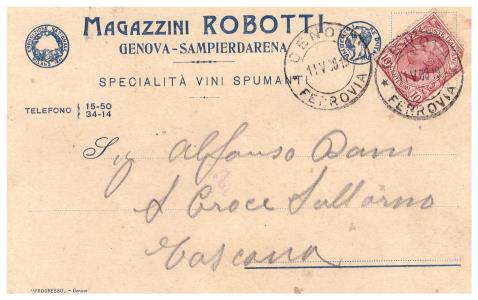 MAGAZZINI ROBOTTI
GENOVA-SAMPIERDARENA
SPECIALITÀ VINI SPUMANTI
TELEFONO { 15-50
34-14
GENOVA
FERROVIA
FERROVIA
Sig Alfonso Bani
S Croce Sull'Arno
Toscana
"PROGRESSO„ - Genova